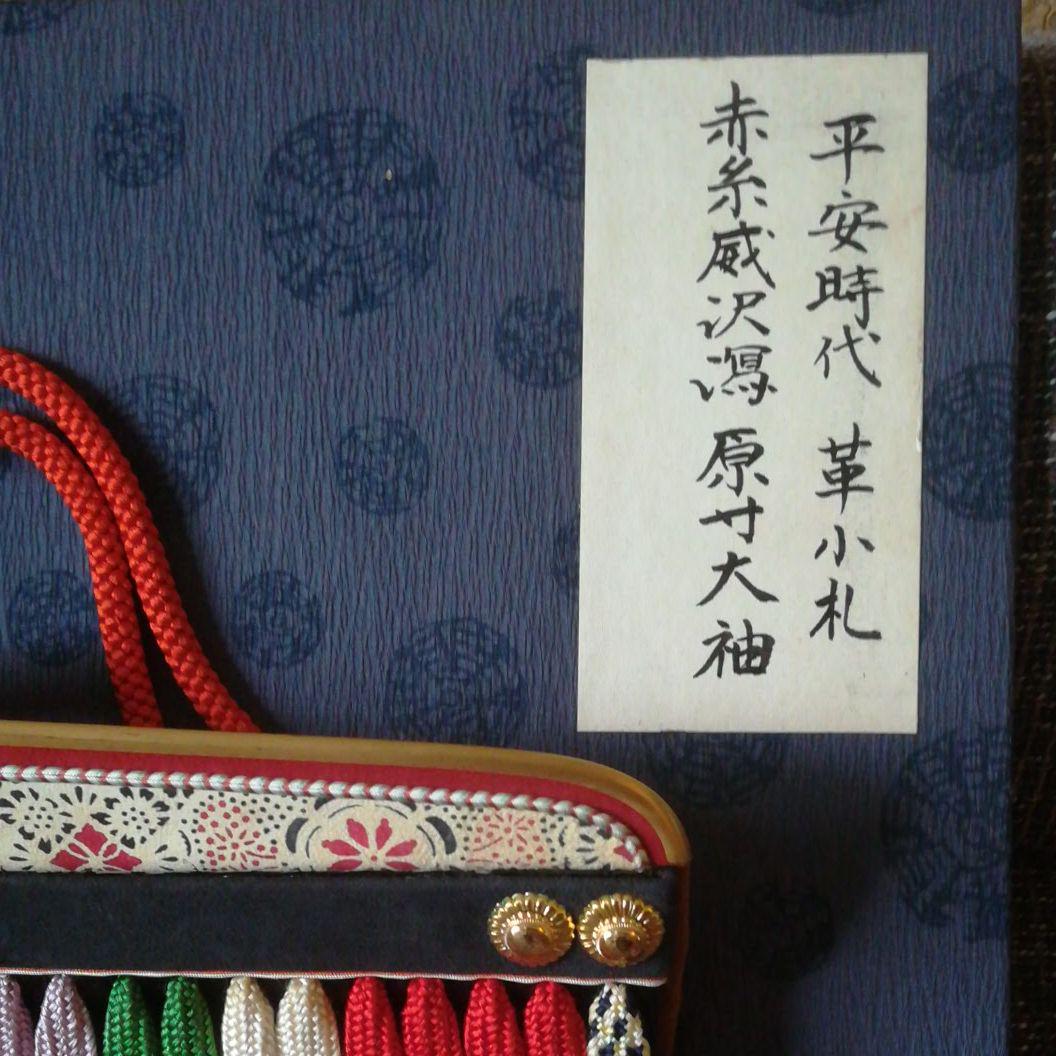 平安時代 革小札
赤糸威沢瀉 原寸大袖